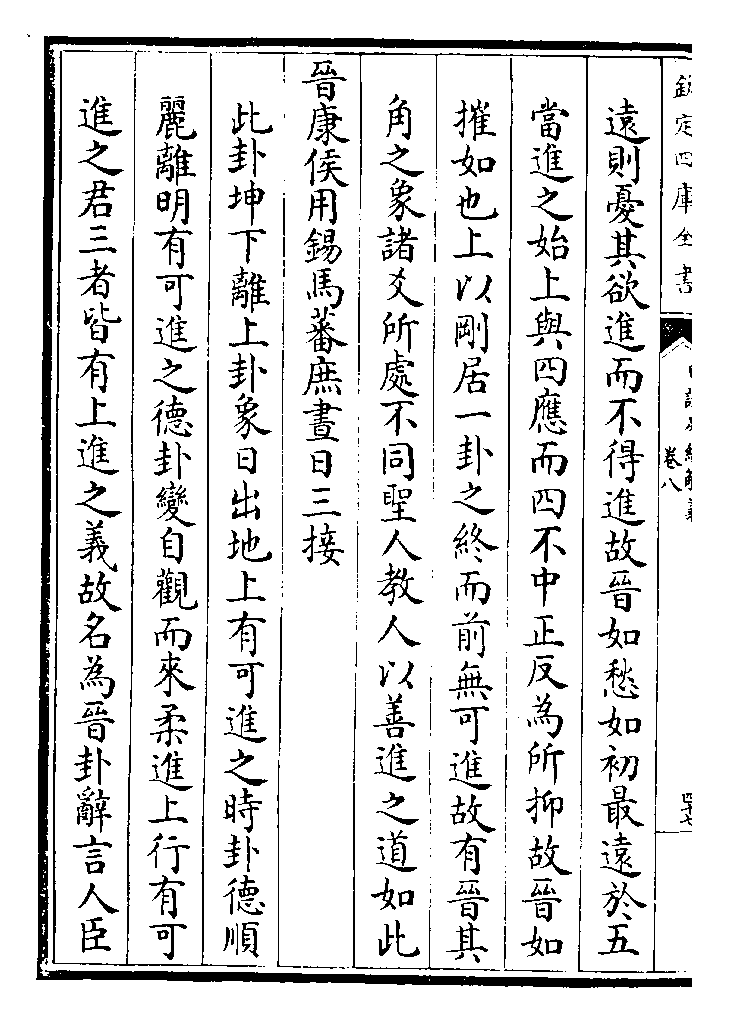 欽定四庫全書
卷八
遠則憂其欲進而不得進故晉如愁如初最遠於五
當進之始上與四應而四不中正反為所抑故晉如
摧如也上以剛居一卦之終而前無可進故有晉其
角之象諸爻所處不同聖人教人以善進之道如此
晉康侯用錫馬蕃庶晝日三接
此卦坤下離上卦象日出地上有可進之時卦德順
麗離明有可進之德卦變自觀而來柔進上行有可
進之君三者皆有上進之義故名為晉卦辭言人臣